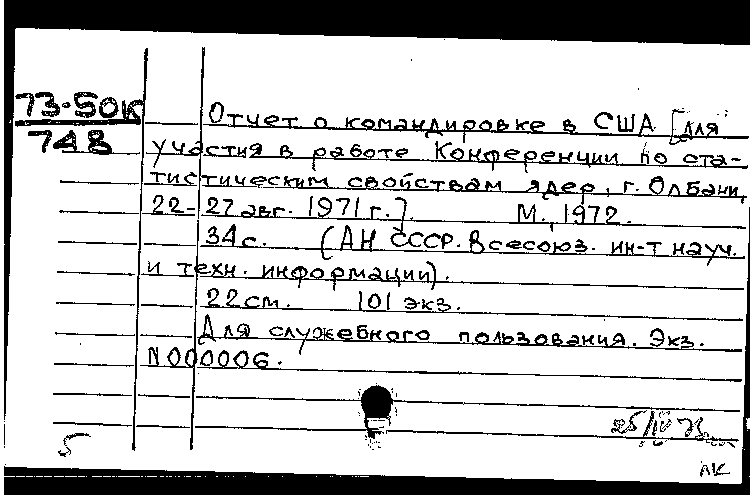 73-50К
748
Отчет о командировке в США [для
участия в работе Конференции по ста-
тистическим свойствам ядер, г. Олбани,
22-27 авг. 1971 г.]. М., 1972.
34 с. (АН СССР. Всесоюз. ин-т науч.
и техн. информации).
22 см. 101 экз.
Для служебного пользования. Экз.
N 000006.
25/IV 73
5
лк